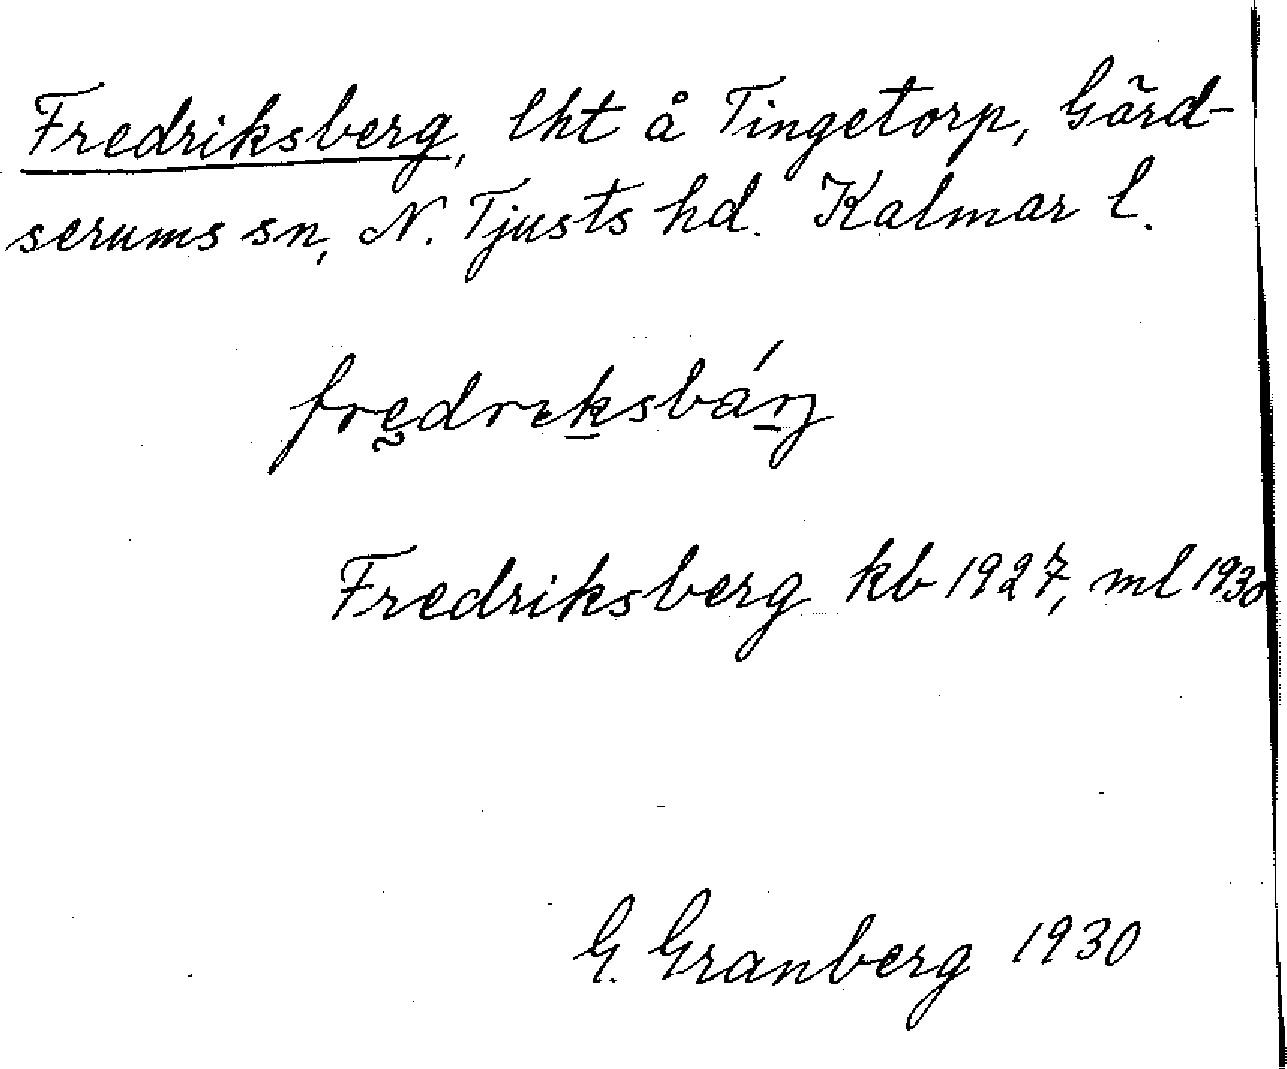 Fredriksberg, lht å Tingetorp, Gärd-
serums sn, N. Tjusts hd. Kalmar l.
Fredriksberg kb 1927, ml 1930
G. Granberg 1930